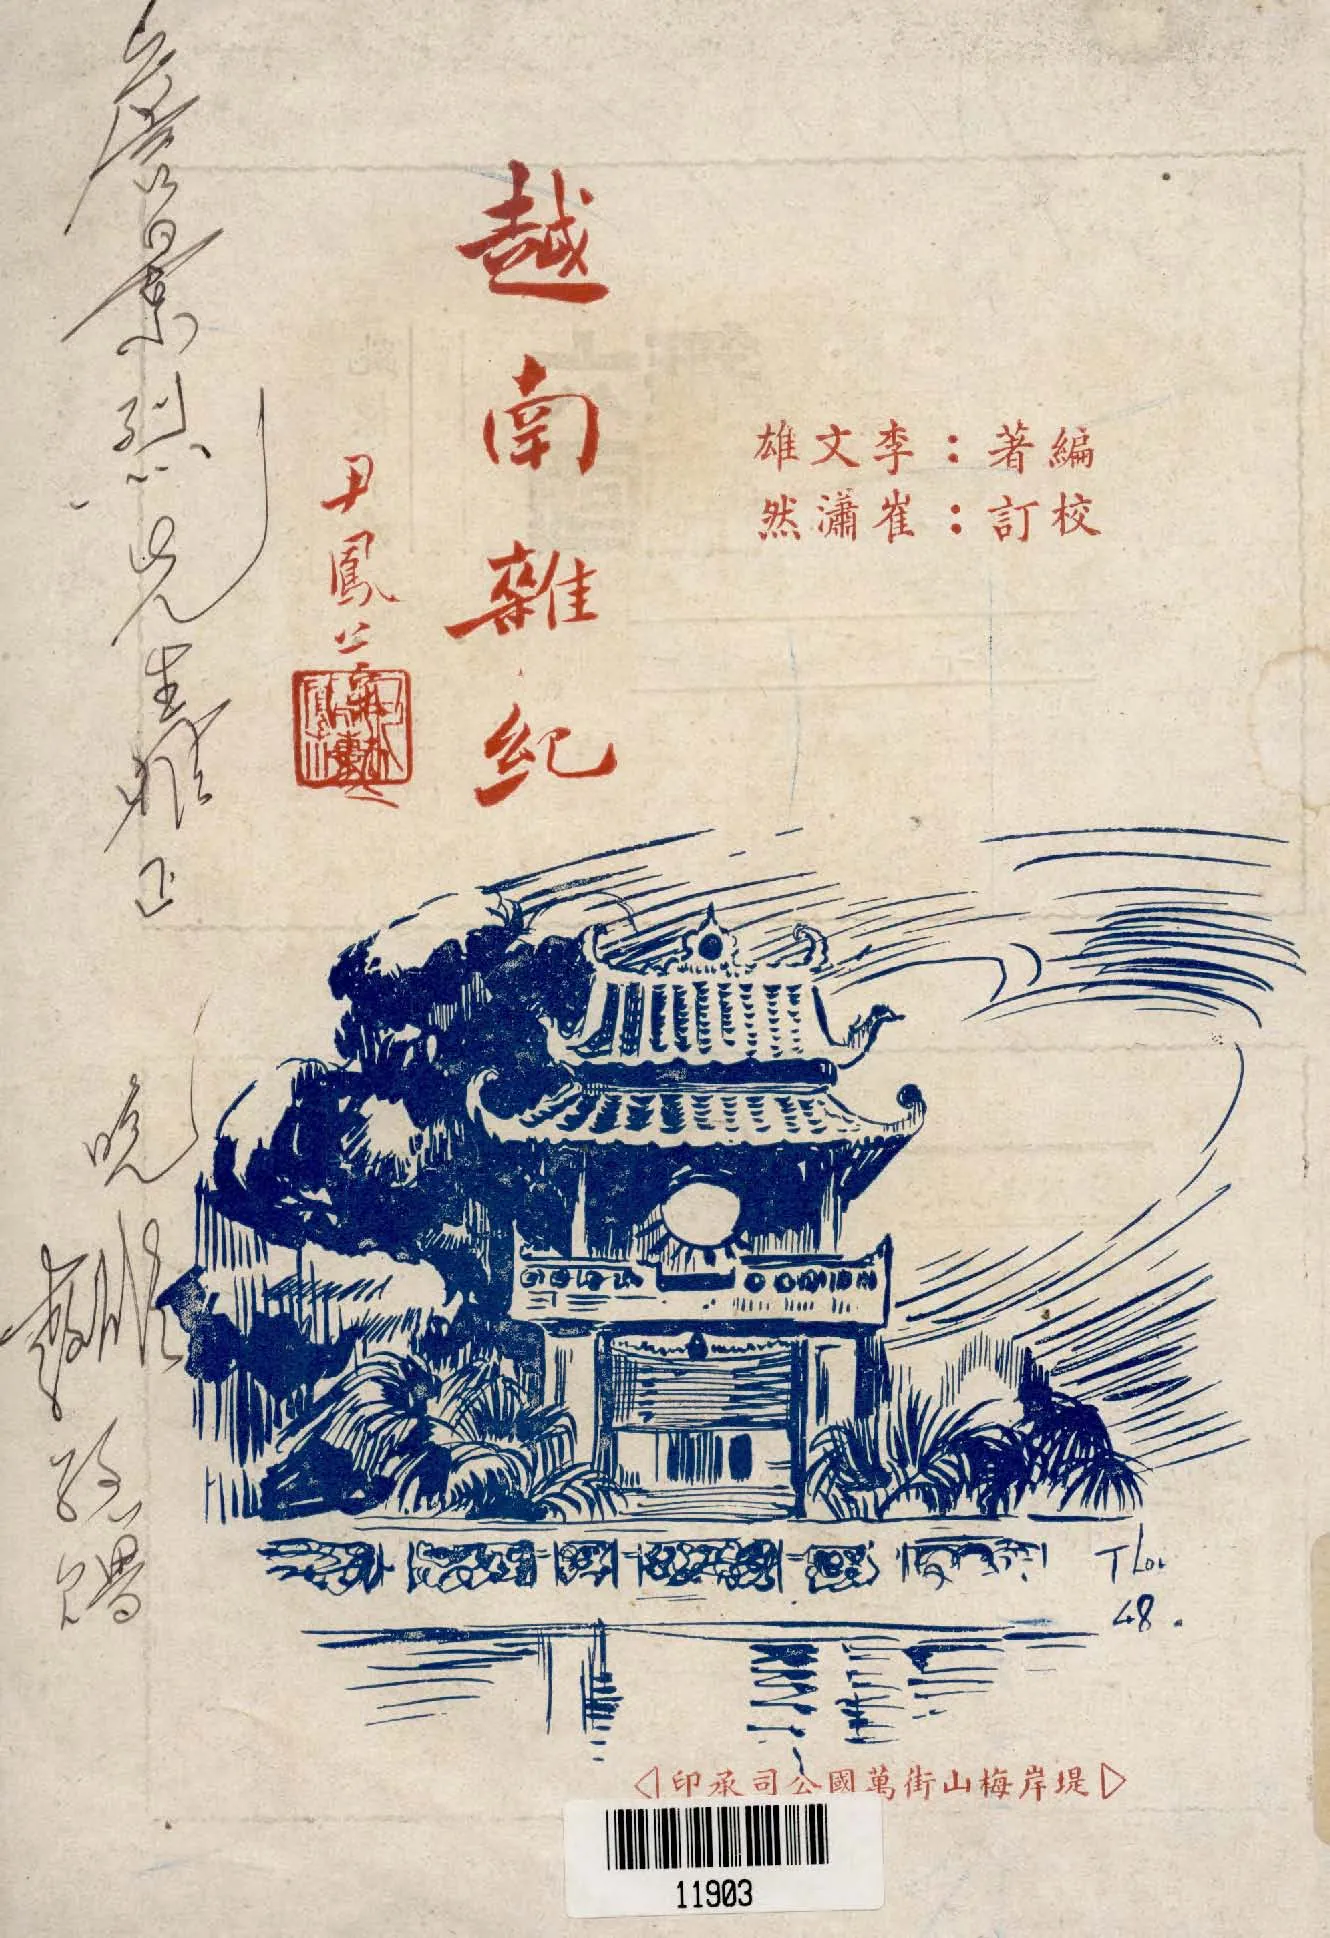 越南雜紀
尹鳳公
編著：李文雄
校訂：崔瀟然
景烈先生雅正
晚
敬贈
T Loi
48.
堤岸梅山街萬國公司承印
11903